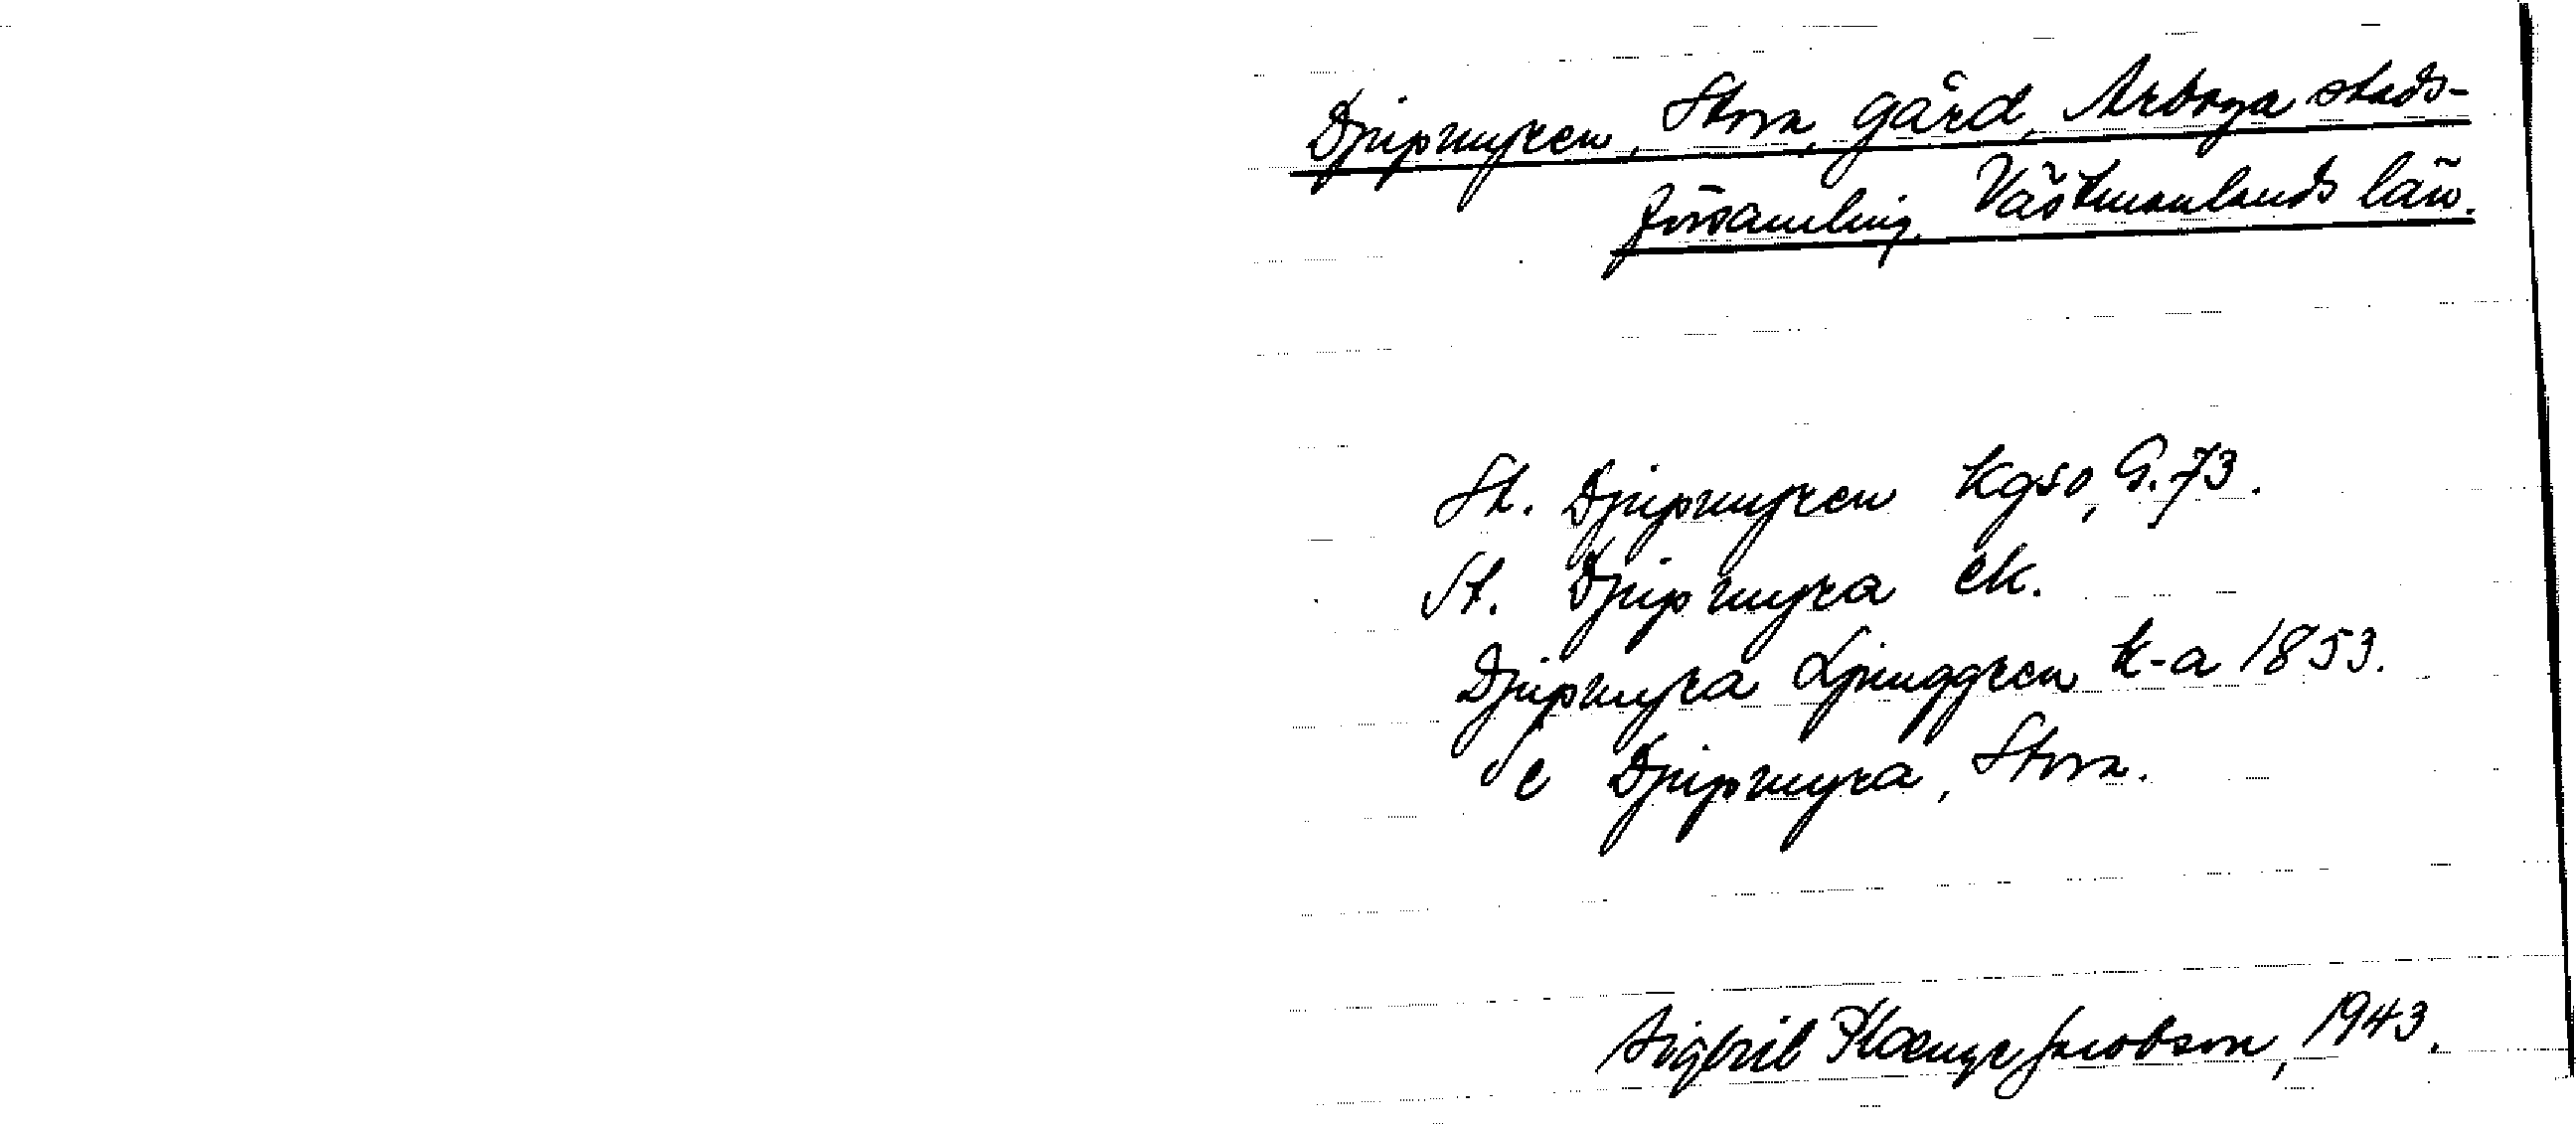 Djupmyren, Stora, gård, Arboga stads-
församling, Västmanlands län.
St. Djupmyren kgso, G. 73.
St. Djupmyra ek.
Djupmyra Ljunggren k-a 1853.
Se Djupmyra, Stora.
Jacobson, 1943.